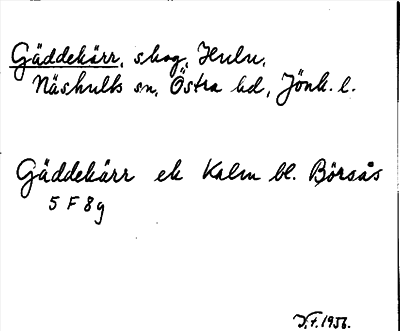 Gäddekärr, skog, Hulu,
Näshults sn, Östra hd, Jönk. l.
Gäddekärr ek Kalm bl. Börsås
5 F 8 g
1956.